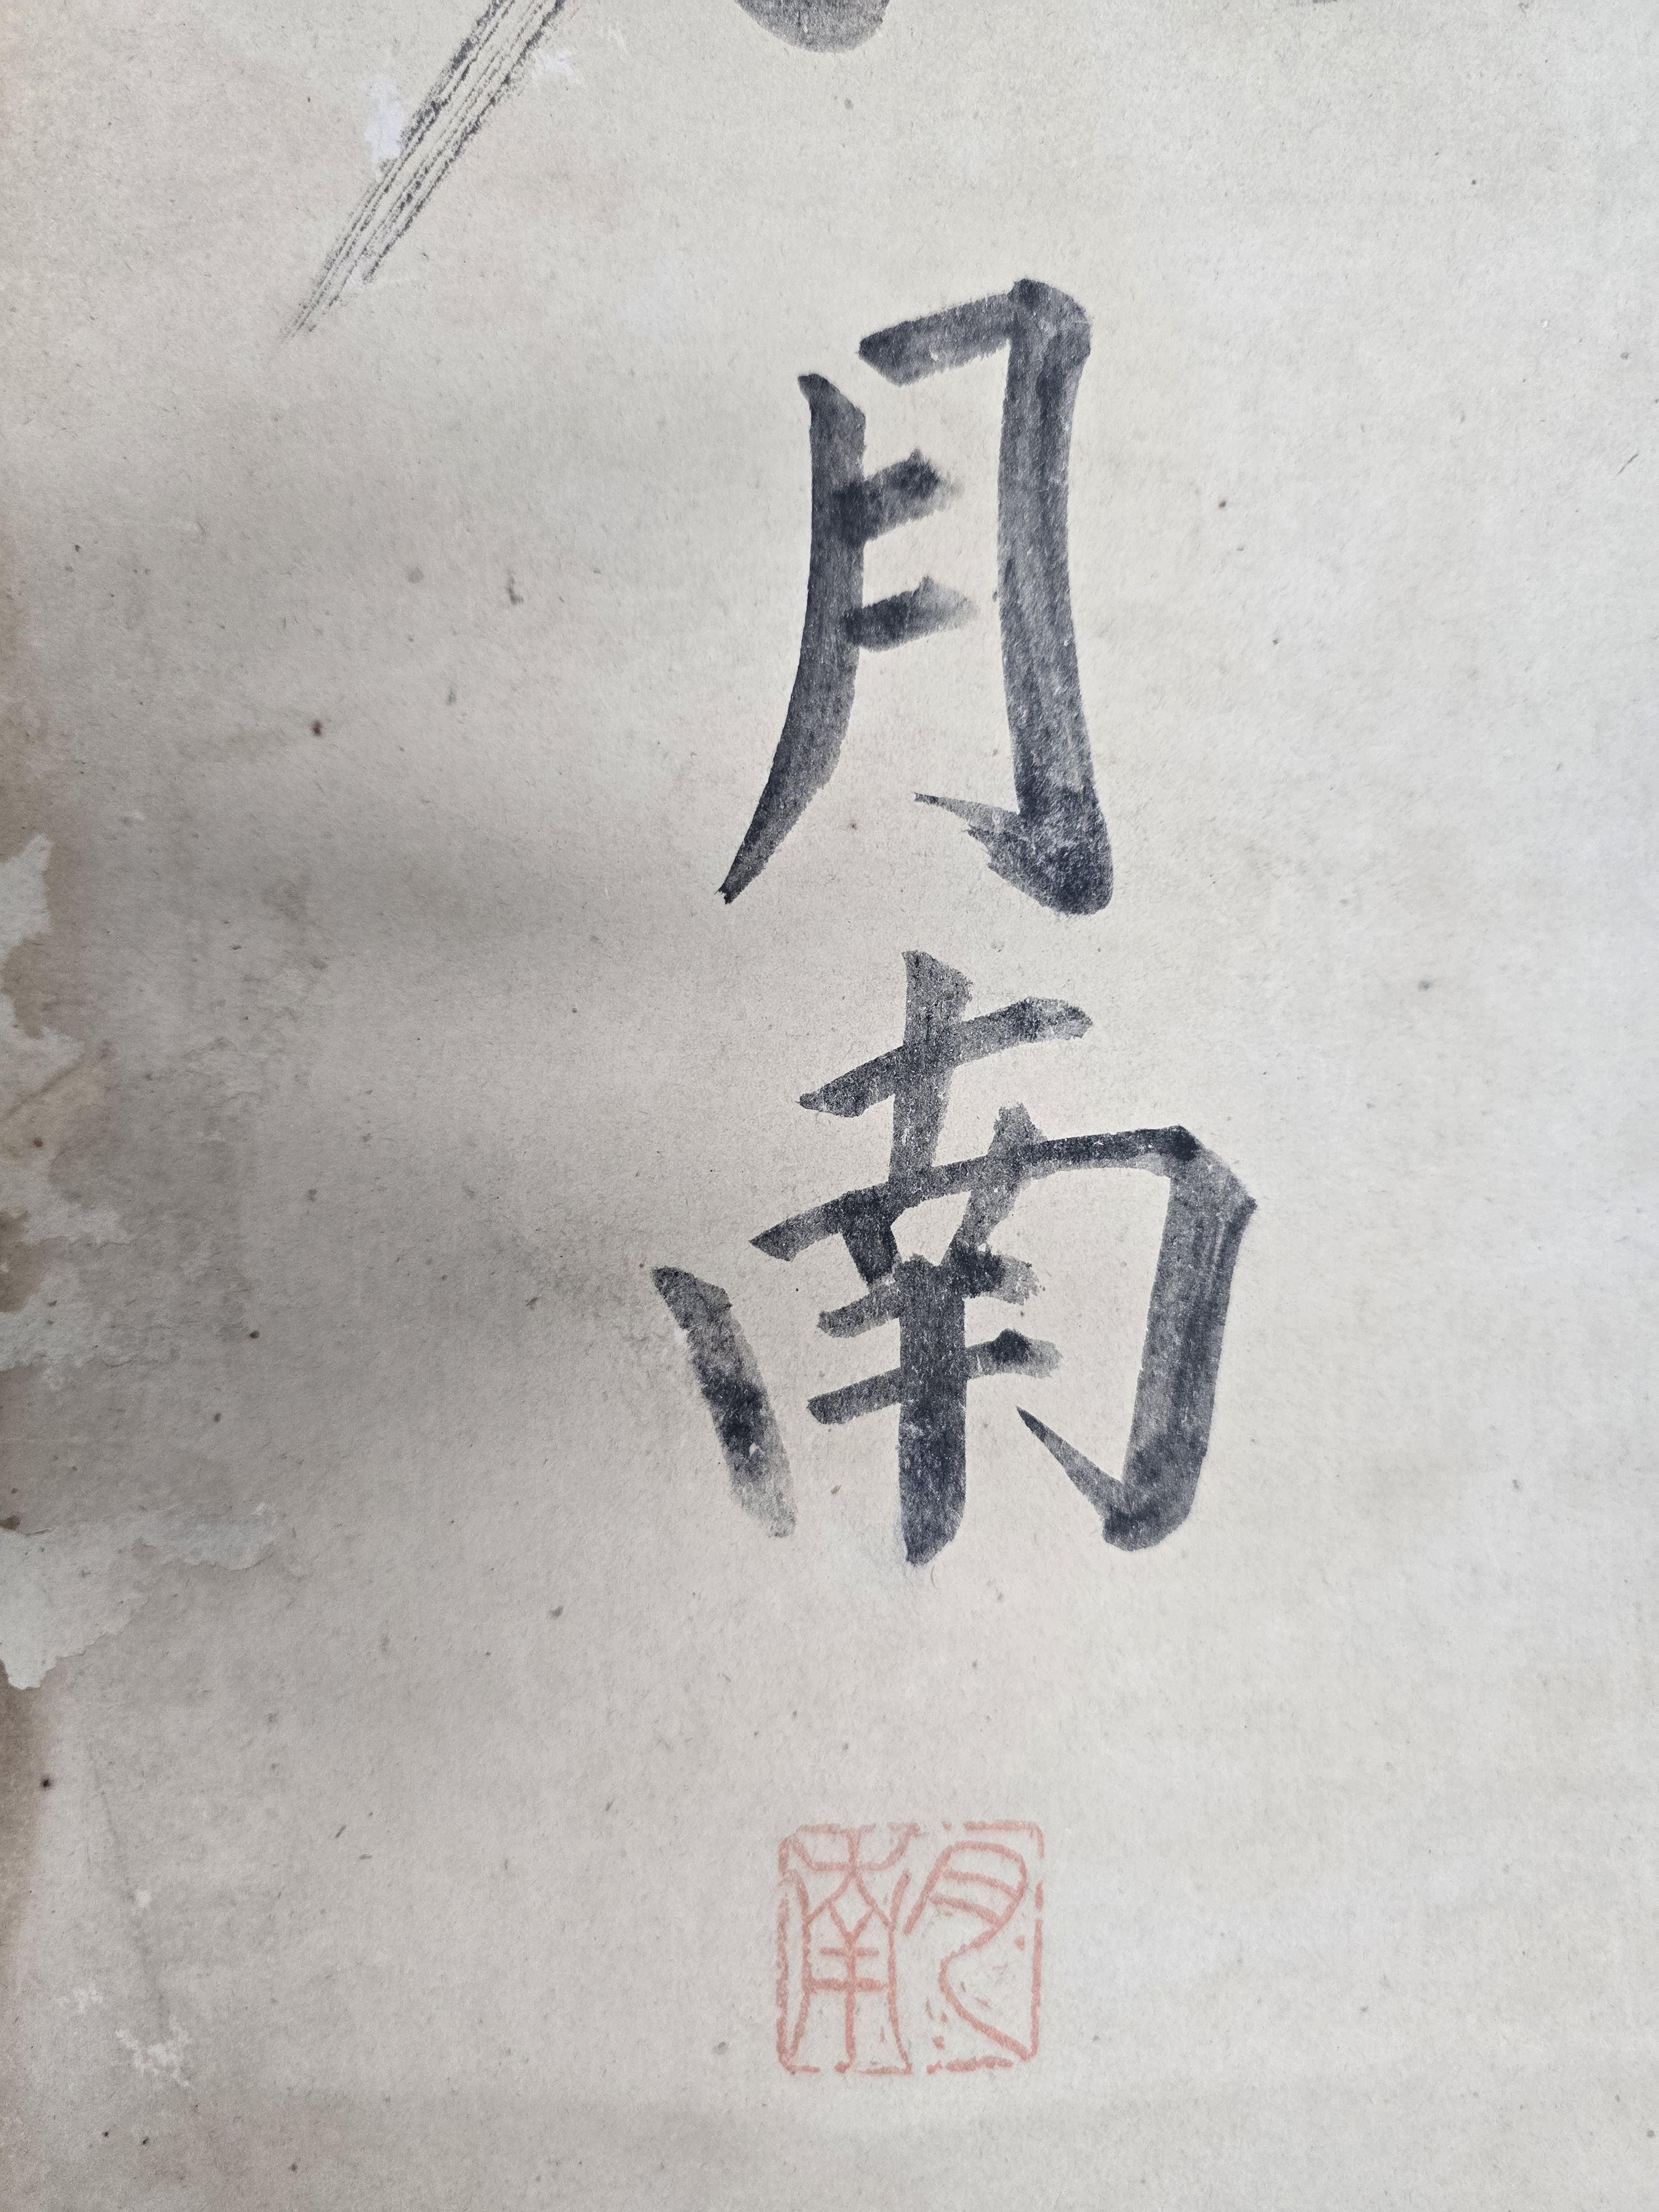 月南
月南